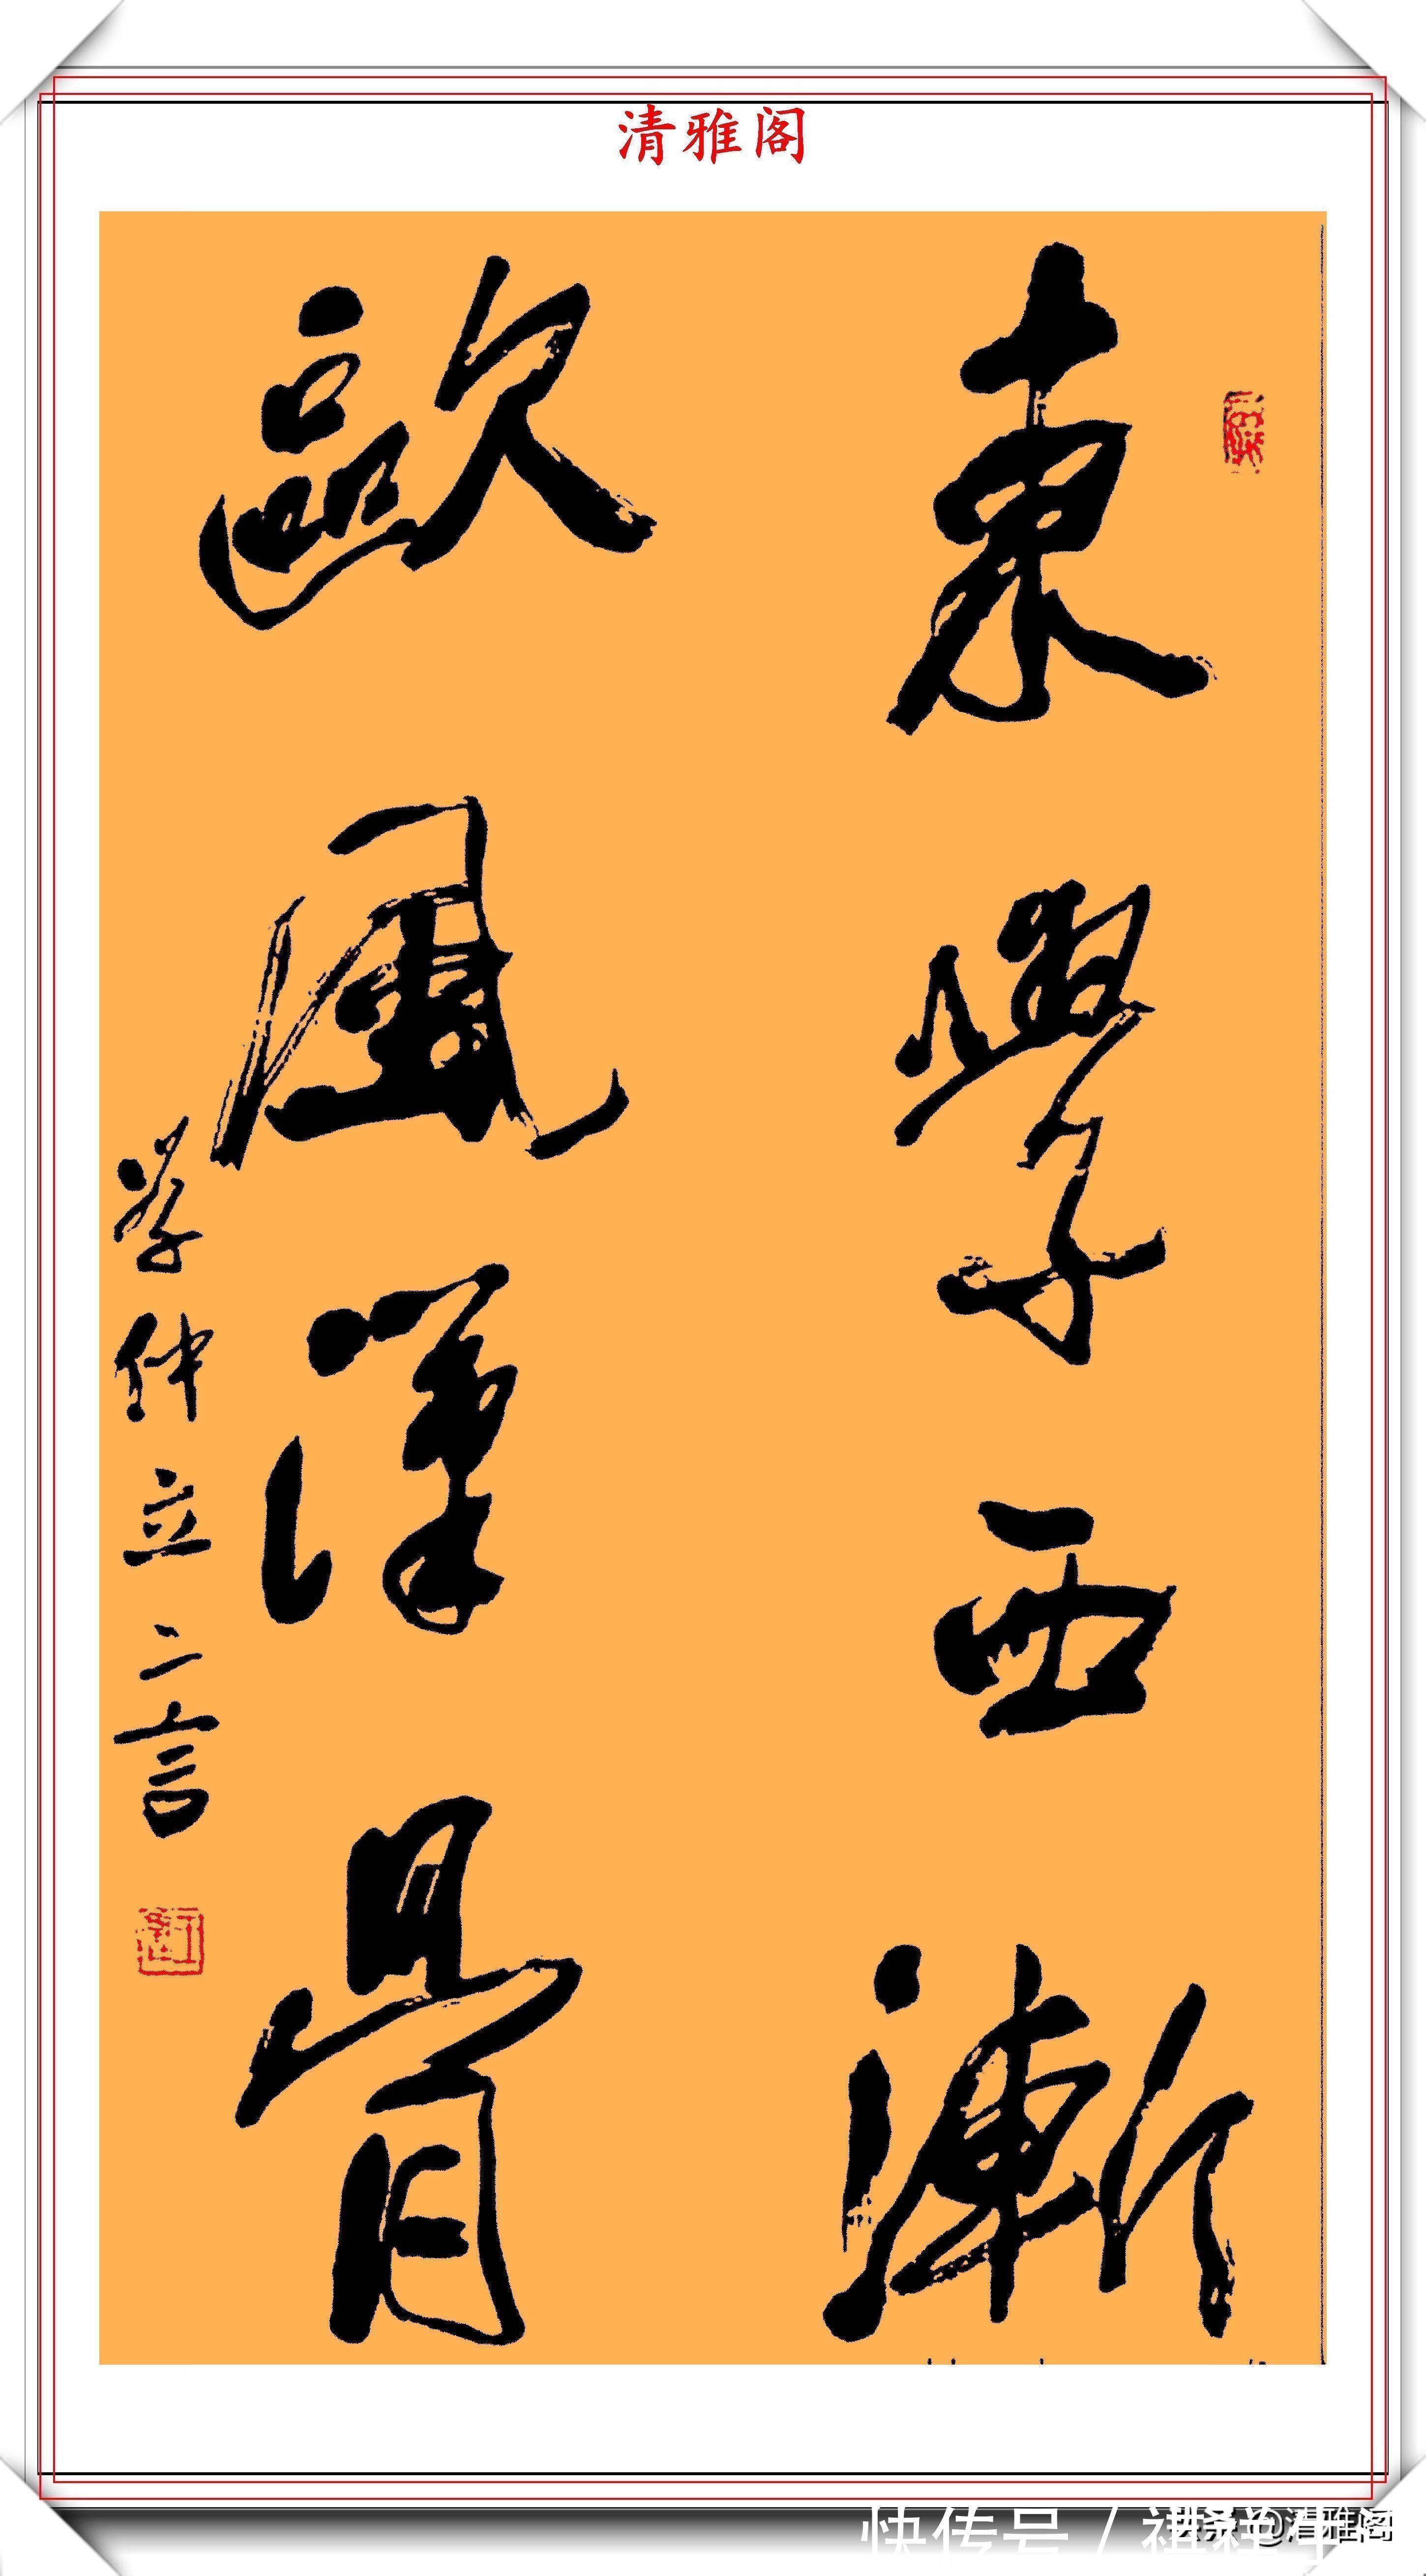 清雅阁
東學西漸
歐風漢骨
学仲立二言
快传号/
@清雅阁